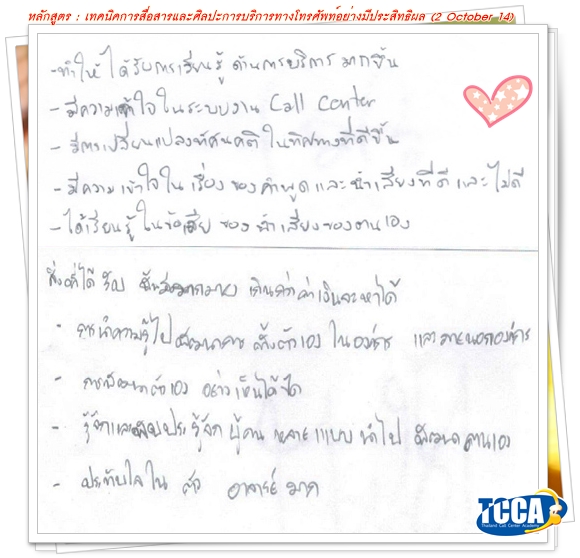 หลักสูตร : เทคนิคการสื่อสารและศิลปะการบริการทางโทรศัพท์อย่างมีประสิทธิผล (2 October 14)
- ทำให้ได้รับการเรียนรู้ด้านการบริการ มากขึ้น
- มีความเข้าใจในระบบงาน Call Center
- มีการเปลี่ยนแปลงทัศนคติในทิศทางที่ดีขึ้น
- มีความเข้าใจในเรื่องของคำพูด และน้ำเสียงที่ดี และไม่ดี
- ได้เรียนรู้ในข้อเสีย ของน้ำเสียงของตนเอง
สิ่งที่ได้รับ มากมาย เกินกว่าค่าเงินจะหาได้
- การนำความรู้ไปพัฒนา ทั้งตัวเอง ในองค์กร และภายนอกองค์กร
- การพัฒนาตัวเอง อย่างเห็นได้ชัด
- รู้จักและ รู้จักผู้คน หลายแบบ นำไป พัฒนาตนเอง
- ประทับใจใน ตัว อาจารย์ มาก
TCCA
Thailand Call Center Academy